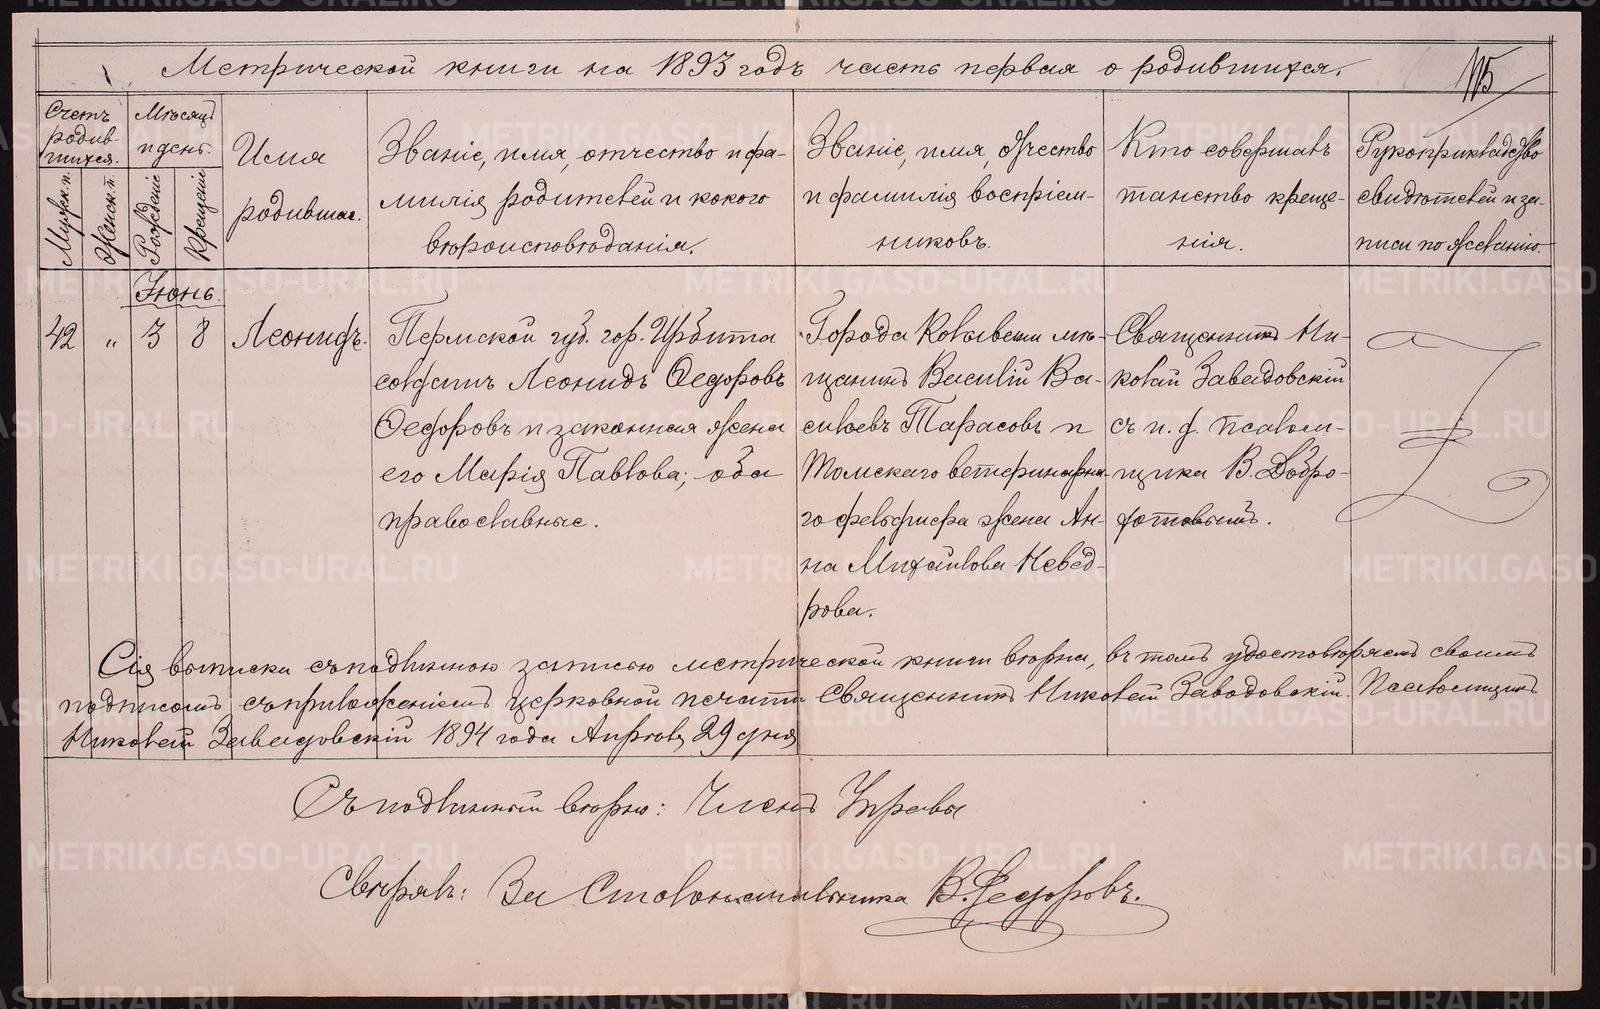 Метрической книги на 1893 годъ часть первая о родившихся.
115
Счетъ родив-шихся.
Мужск. п.
Женск. п.
Мѣсяцъ и день.
Рожденіе
Крещеніе
Имя
родившаг.
Званіе, имя, отчество и фа-
милія родителей и какого
вѣроисповѣданія.
Званіе, имя, отчество
и фамилія воспріем-
никовъ.
Кто совершалъ
таинство креще-
нія.
Рукоприкладство
свидѣтелей и за-
писи по желанію.
Іюнь.
42 " 3 8 Леонидъ.
Пермской губ. гор. Ирбита
солдатъ Леонидъ Ѳедоровъ
Ѳедоровъ и законная жена
его Марія Павлова; оба
православные.
Города Колывани мѣ-
щанинъ Василій Ва-
сильевъ Тарасовъ и
Томскаго ветеринарна-
го фельдшера жена Ан-
на Михайлова Невѣд-
рова.
Священникъ Ни-
колай Завадовскій
съ и. д. псалом-
щика В. Добро-
хотовымъ.
Сія выписка съ подлинною записью метрической книги вѣрна, въ томъ удостовѣряемъ своимъ
подписомъ съ приложеніемъ церковной печати Священникъ Николай Заводовскій. Псаломщикъ
Николай Завадовскій 1894 года Апрѣля 29 дня
Съ подлиннымъ вѣрно: Членъ Управы
Свѣрялъ: За Столоначальника В. Федоровъ.
METRIKI.GASO-URAL.RU